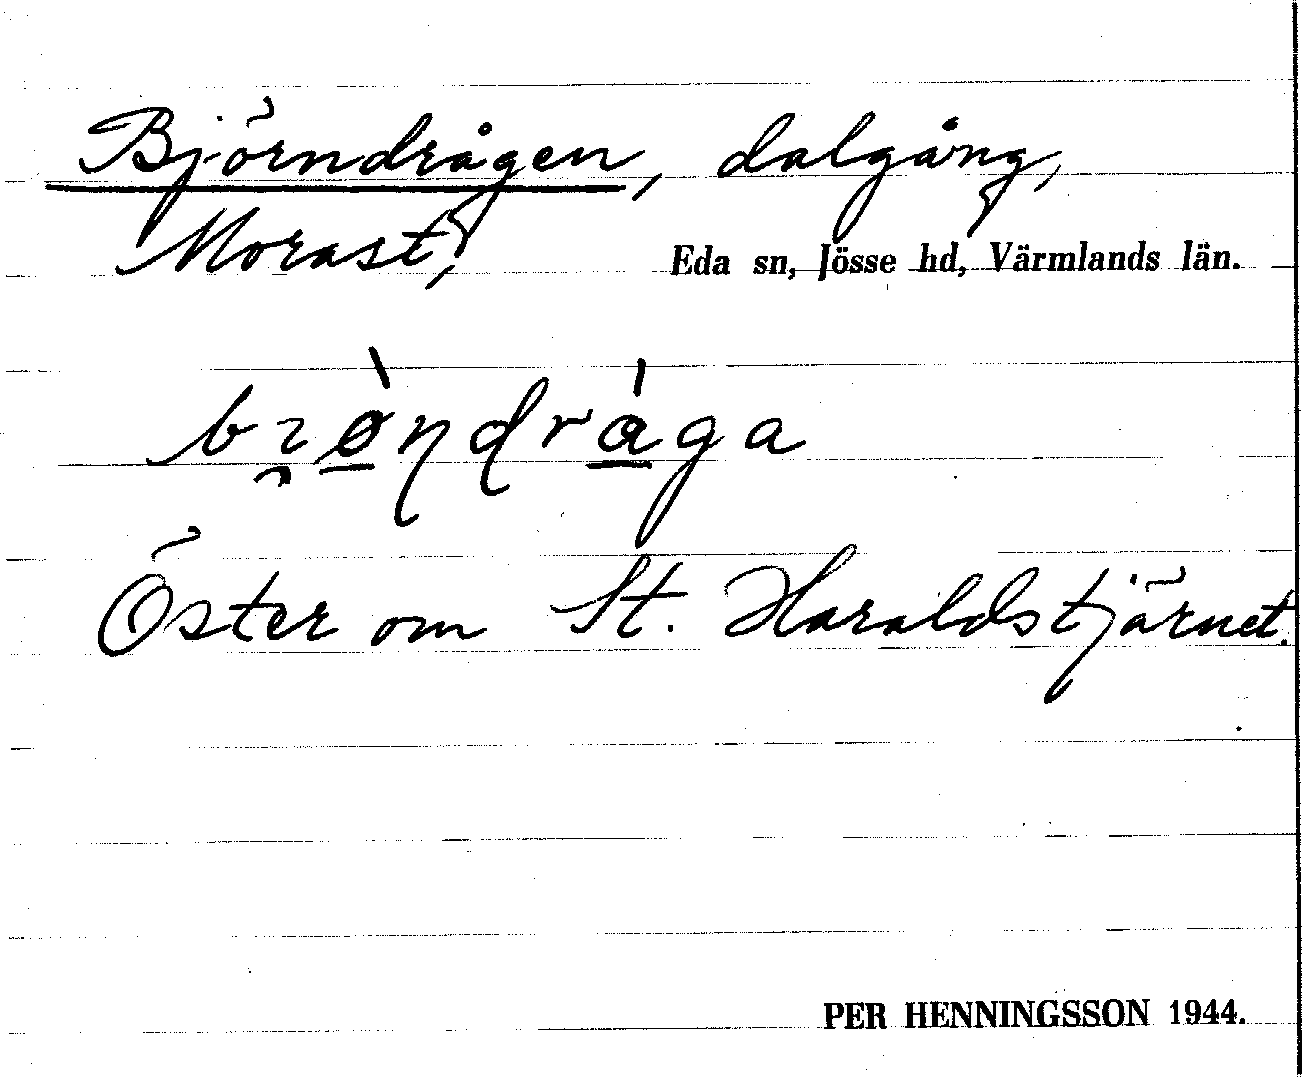 Björndrågen, dalgång,
Morast,
Eda sn, Jösse hd, Värmlands län.
Öster om St. Haraldstjärnet.
PER HENNINGSSON 1944.